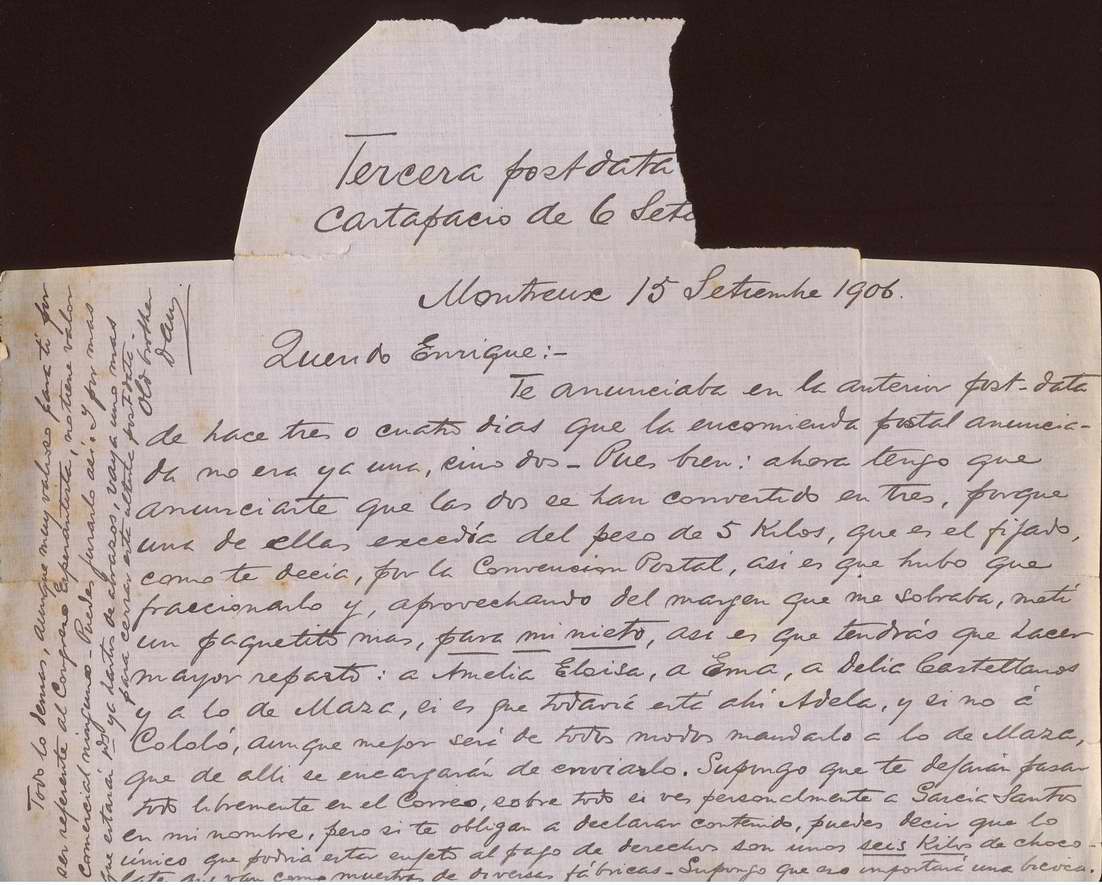 Tercera post data
Cartapacio de 6 Sete
Montreux 15 Setiembre 1906.
Querido Enrique:-
Te anunciaba en la anterior post-data
de hace tres o cuatro dias que la encomienda postal anuncia-
da no era ya una, sino dos - Pues bien: ahora tengo que
anunciarte que las dos se han convertido en tres, porque
una de ellas excedía del peso de 5 Kilos, que es el fijado,
como te decia, por la Convencion Postal, asi es que hubo que
fraccionarlo y, aprovechando del margen que me sobraba, metí
un paquetito mas, para mi nieto, asi es que tendrás que hacer
mayor reparto: a Amelia Eloisa, a Ema, a Delia Castellanos
y a lo de Maza, si es que todavía está ahi Adela, y si no á
Cololó, aunque mejor será de todos modos mandarlo a lo de Maza,
que de alli se encargarán de enviarlo. Supongo que te dejarán pasar
todo libremente en el Correo, sobre todo si ves personalmente a Garcia Santos
en mi nombre, pero si te obligan a declarar contenido, puedes decir que lo
único que podria estar sujeto al pago de derechos son unos seis Kilos de choco-
late que van como muestras de diversas fábricas - Supongo que eso importará una bicoca.
Todo lo demas, aunque muy valioso para ti por
ser referente al Congreso Esperantista, no tiene valor
comercial ninguno - Puedes jurarlo asi: Y por mas
que estarán Vds ya hartos de abrazos, vaya uno mas
para cerrar esta ultima postdata -
Old brother
Dany.